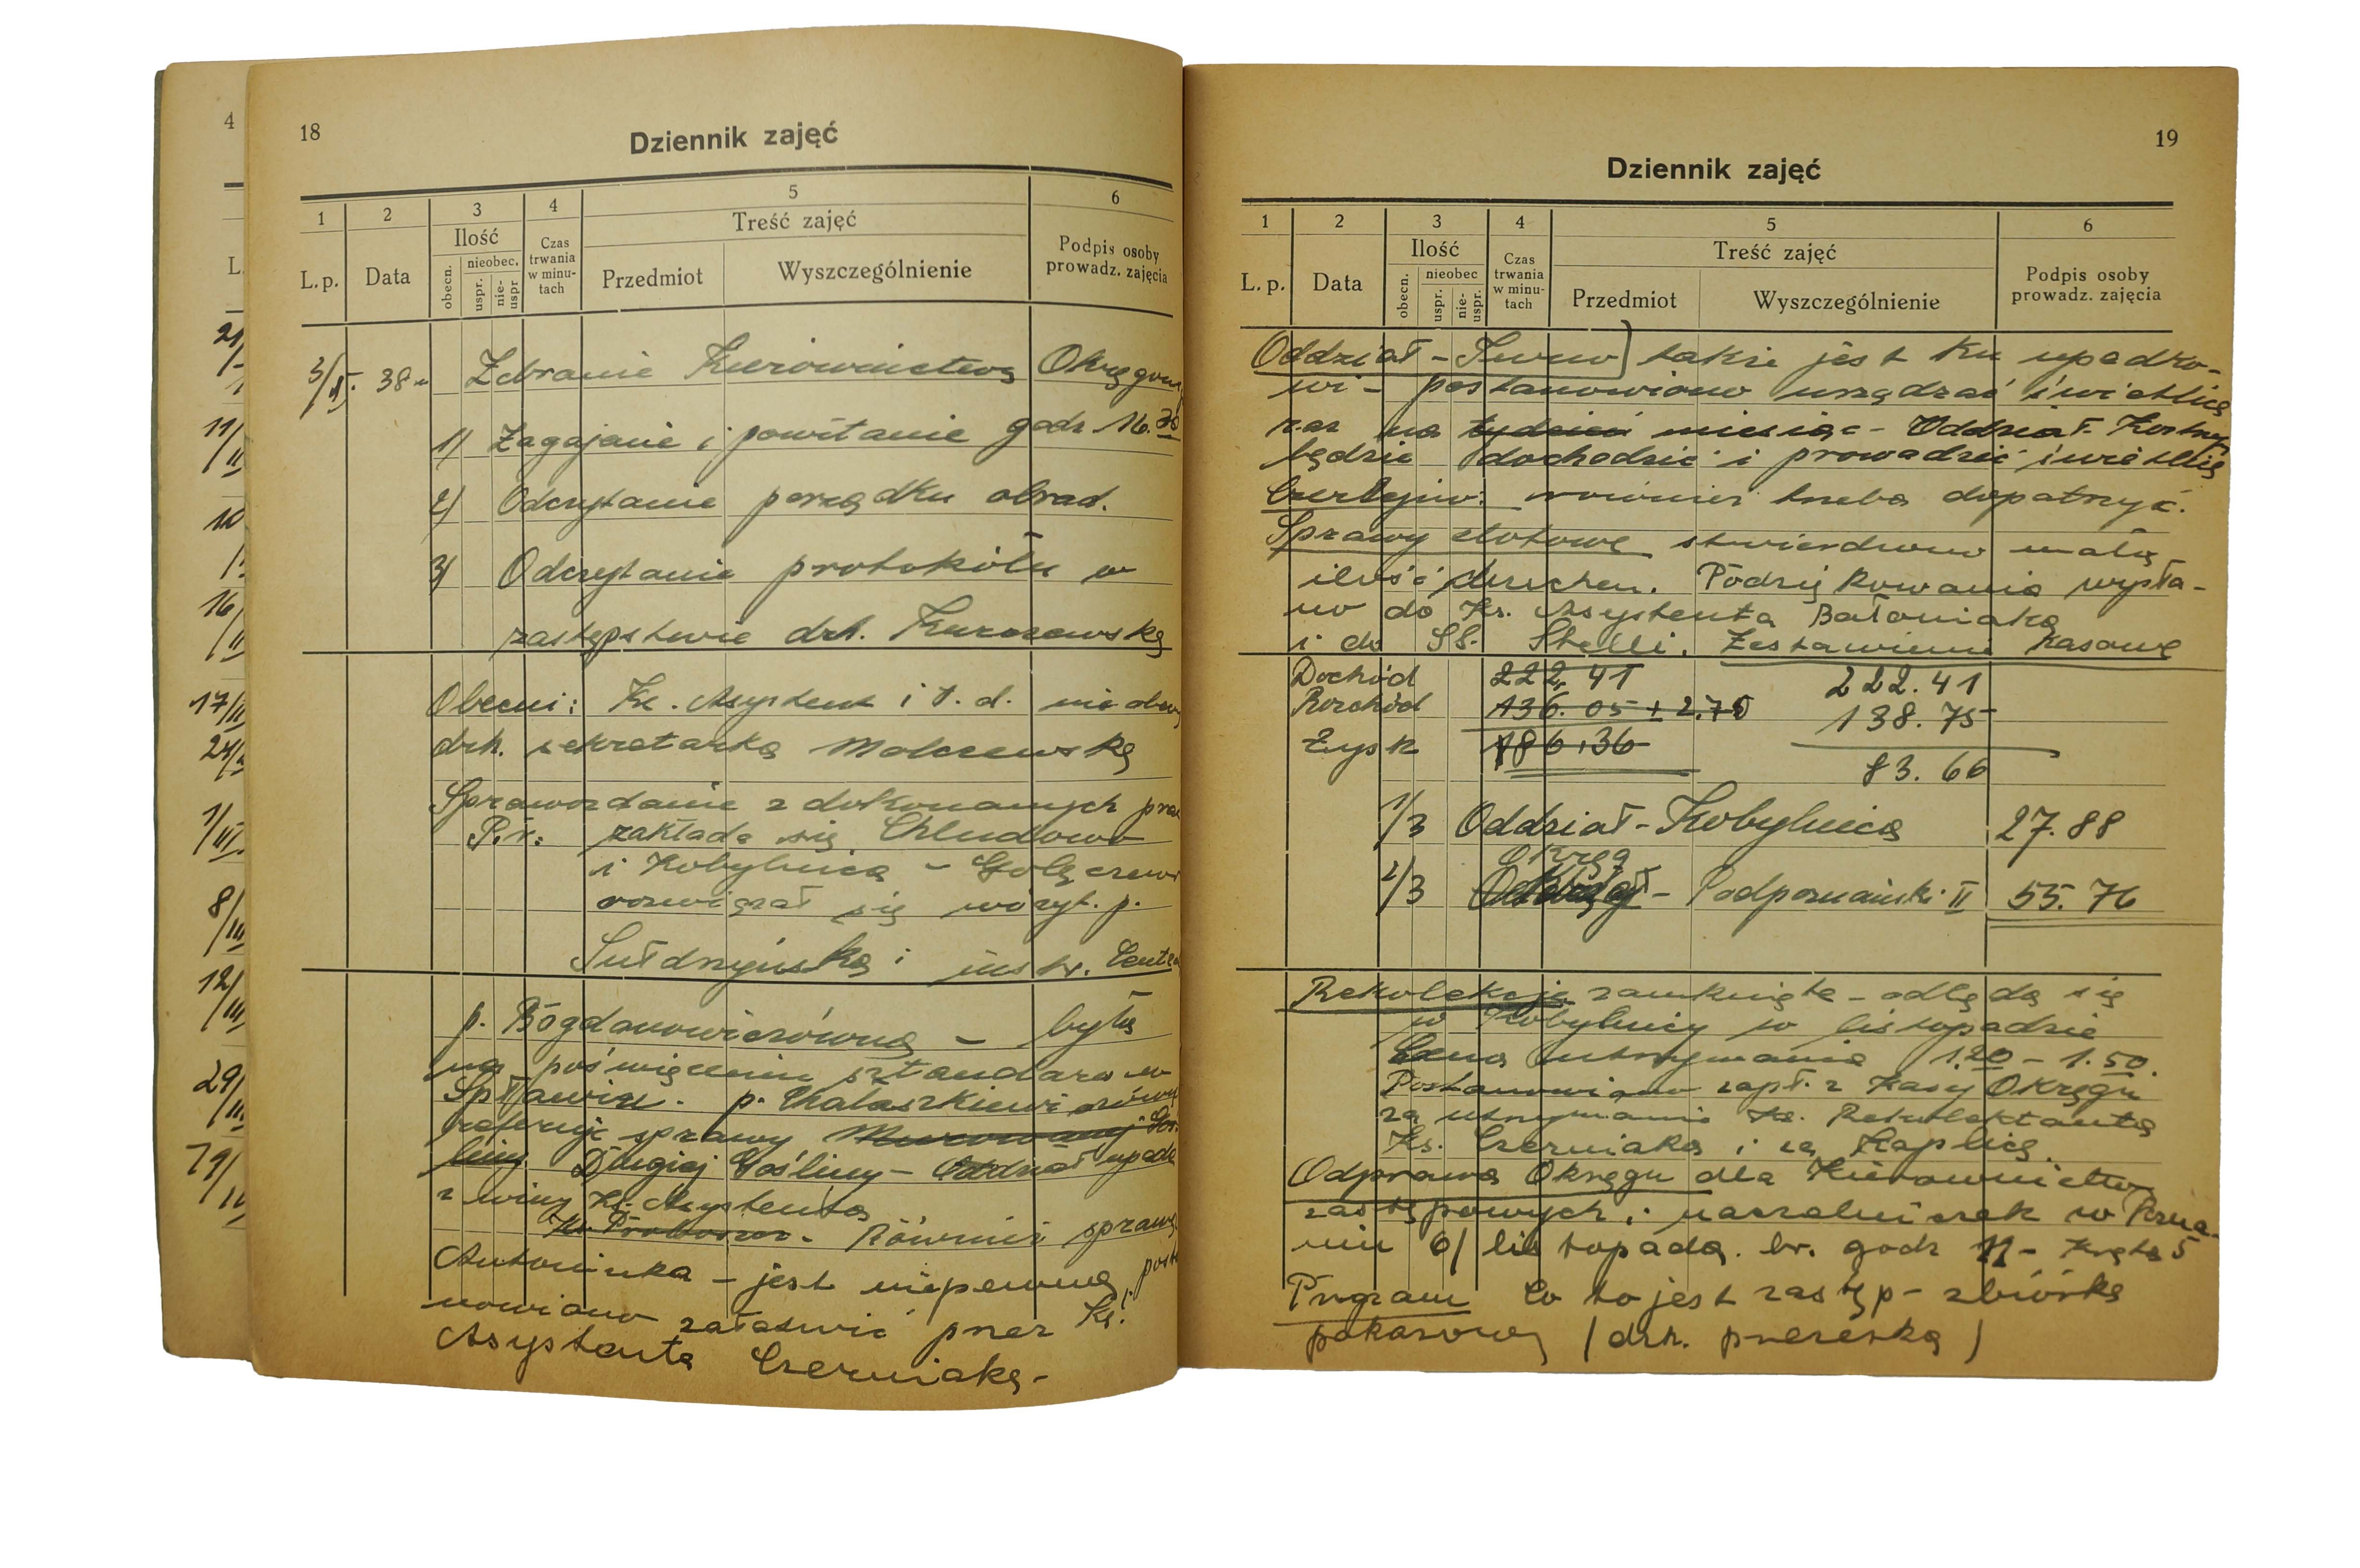 4
L.
21/
11/II
10
16/II
17/II
24/
1/III.
8/III
12/III
29/III
18
Dziennik zajęć
1 2 3 4 5 6
L. p. Data Ilość Czas trwania w minutach Treść zajęć Podpis osoby prowadz. zajęcia
obecn. nieobec. uspr. nieuspr Przedmiot Wyszczególnienie
38 Zebranie Kierownictwa Okręgow
1) Zagajanie i powitanie godz 16.30
2) Odczytanie porządku obrad.
3) Odczytanie protokółu w
zastępstwie drh. Kurczewska
Obecni: Ks. Asystent i t. d. nie obec
drh. sekretarka Malczewska
Sprawozdanie z dokonanych prac
P.r.: zakłada się Chludowo
i Kobylnica - Golęczewo
rozwiązał się wizyt. p.
Sułdrzyńska i instr. Centr
p. Bogdanowiczówna - była
na poświęceniu sztandaru w
Spławiu. p. Chałaszkiewiczówna
referuje sprawy Murowanej Goś
liny Długiej Gośliny - Oddział upada
z winy Ks. Asystenta
Ks. Proboszcz. Również sprawa
Antoninka - jest niepewna, posta
nowiono załatwić przez Ks.
Asystenta Czerniaka -
19
Dziennik zajęć
1 2 3 4 5 6
L. p. Data Ilość Czas trwania w minutach Treść zajęć Podpis osoby prowadz. zajęcia
obecn. nieobec uspr. nieuspr. Przedmiot Wyszczególnienie
Oddział - także jest ku upadko-
wi - postanowiono urządzać świetlicę
raz na tydzień miesiąc - Oddział
będzie dochodzić i prowadzić świetlicę
również trzeba dopatrzyć.
Sprawy zlotowe stwierdzono małą
ilość druchen. Podziękowania wysła-
no do Ks. Asystenta Bałoniaka
i do SS. Stelli. Zestawienie kasowe
Dochód 222,41 222.41
Rozchód 136.05 + 2.70 138.75
Zysk 186,36 83.66
1/3 Oddział - Kobylnica 27.88
Okręg
2/3 Oddział - Podpoznański II 55.76
Rekolekcje zamknięte - odlędą się
w Kobylnicy w listopadzie
Cena utrzymania 1.20 - 1.50.
Postanowiono zapł. z Kasy Okręgu
za utrzymanie Ks. Rekolektanta
Ks. Czerniaka i za Kaplicę.
Odprawa Okręgu dla Kierownictw
zastępowych i naczelniczek w Pozna-
niu 6/ listopada br. godz 11 - Kręta 5
Program Co to jest zastęp - zbiórka
pokazowa (drh. prezeska)